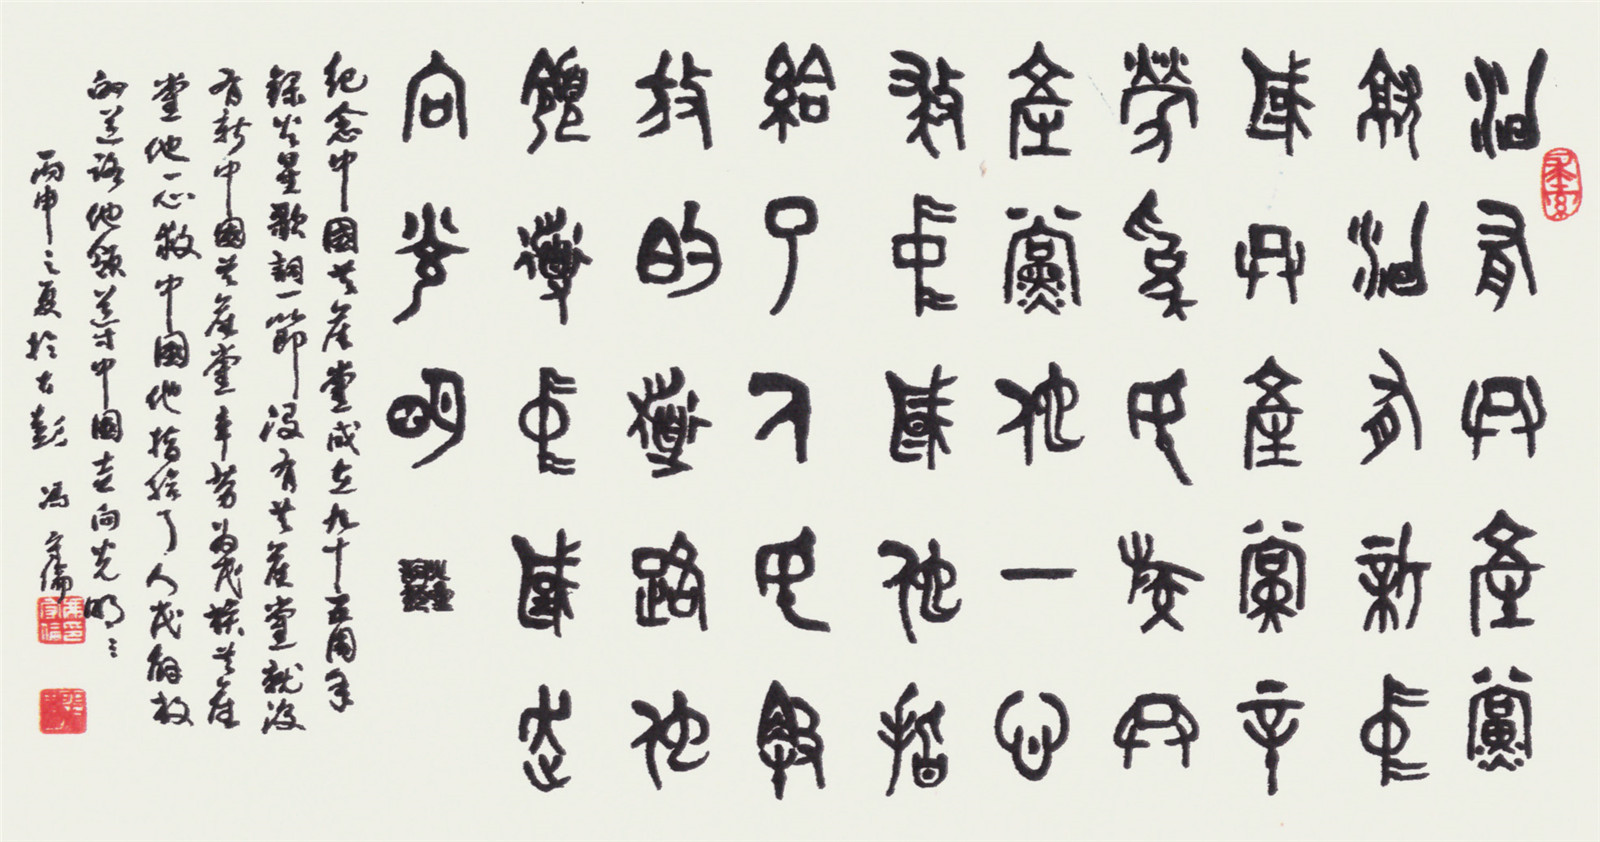 沒有共產黨
就沒有新中
國共產黨辛
勞為民族共
產黨他一心
救中國他指
給了人民解
放的道路他
領導中國走
向光明
纪念中國共產党成立九十五周年
録火星歌詞一節没有共產党就没
有新中國共產党辛劳为民族共產
党他一心救中國他指给了人民解放
的道路他領導中國走向光明
丙申之夏於古彭 冯